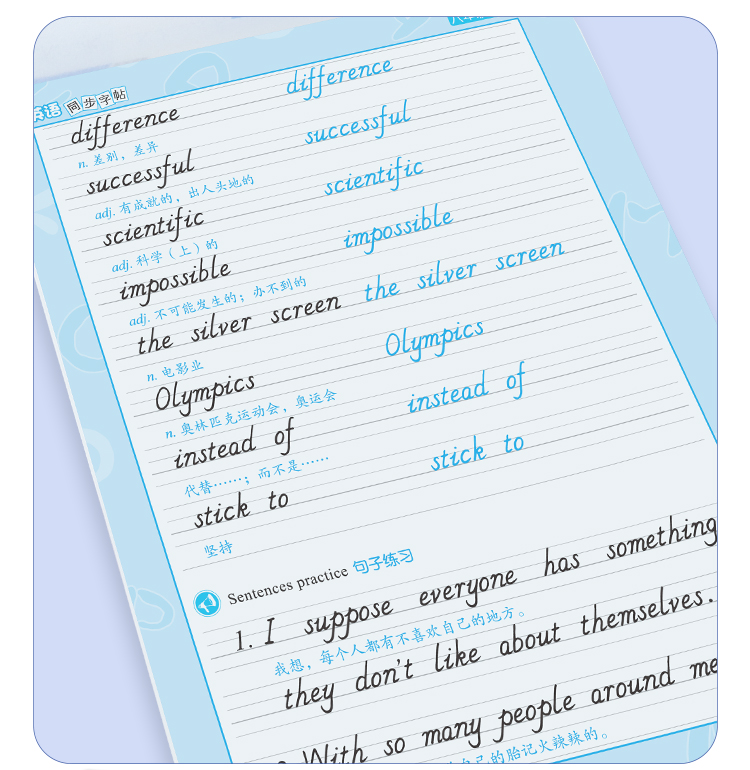 英语 同步字帖
difference difference
n. 差别，差异
successful successful
adj. 有成就的，出人头地的
scientific scientific
adj. 科学（上）的
impossible impossible
adj. 不可能发生的；办不到的
the silver screen the silver screen
n. 电影业
Olympics Olympics
n. 奥林匹克运动会，奥运会
instead of instead of
代替……；而不是……
stick to stick to
坚持
Sentences practice 句子练习
1. I suppose everyone has something
我想，每个人都有不喜欢自己的地方。
they don't like about themselves.
With so many people around me
自己的胎记火辣辣的。